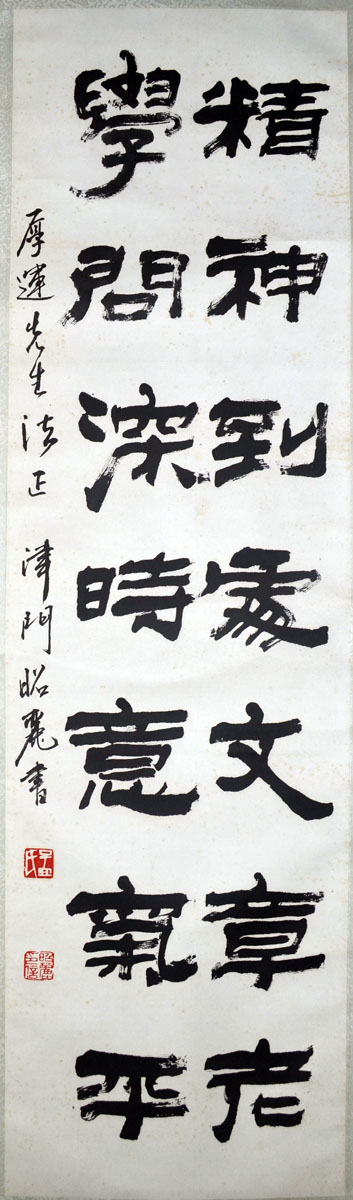 精神到處文章老
學問深時意氣平
厚運先生法正 津門昭麗書